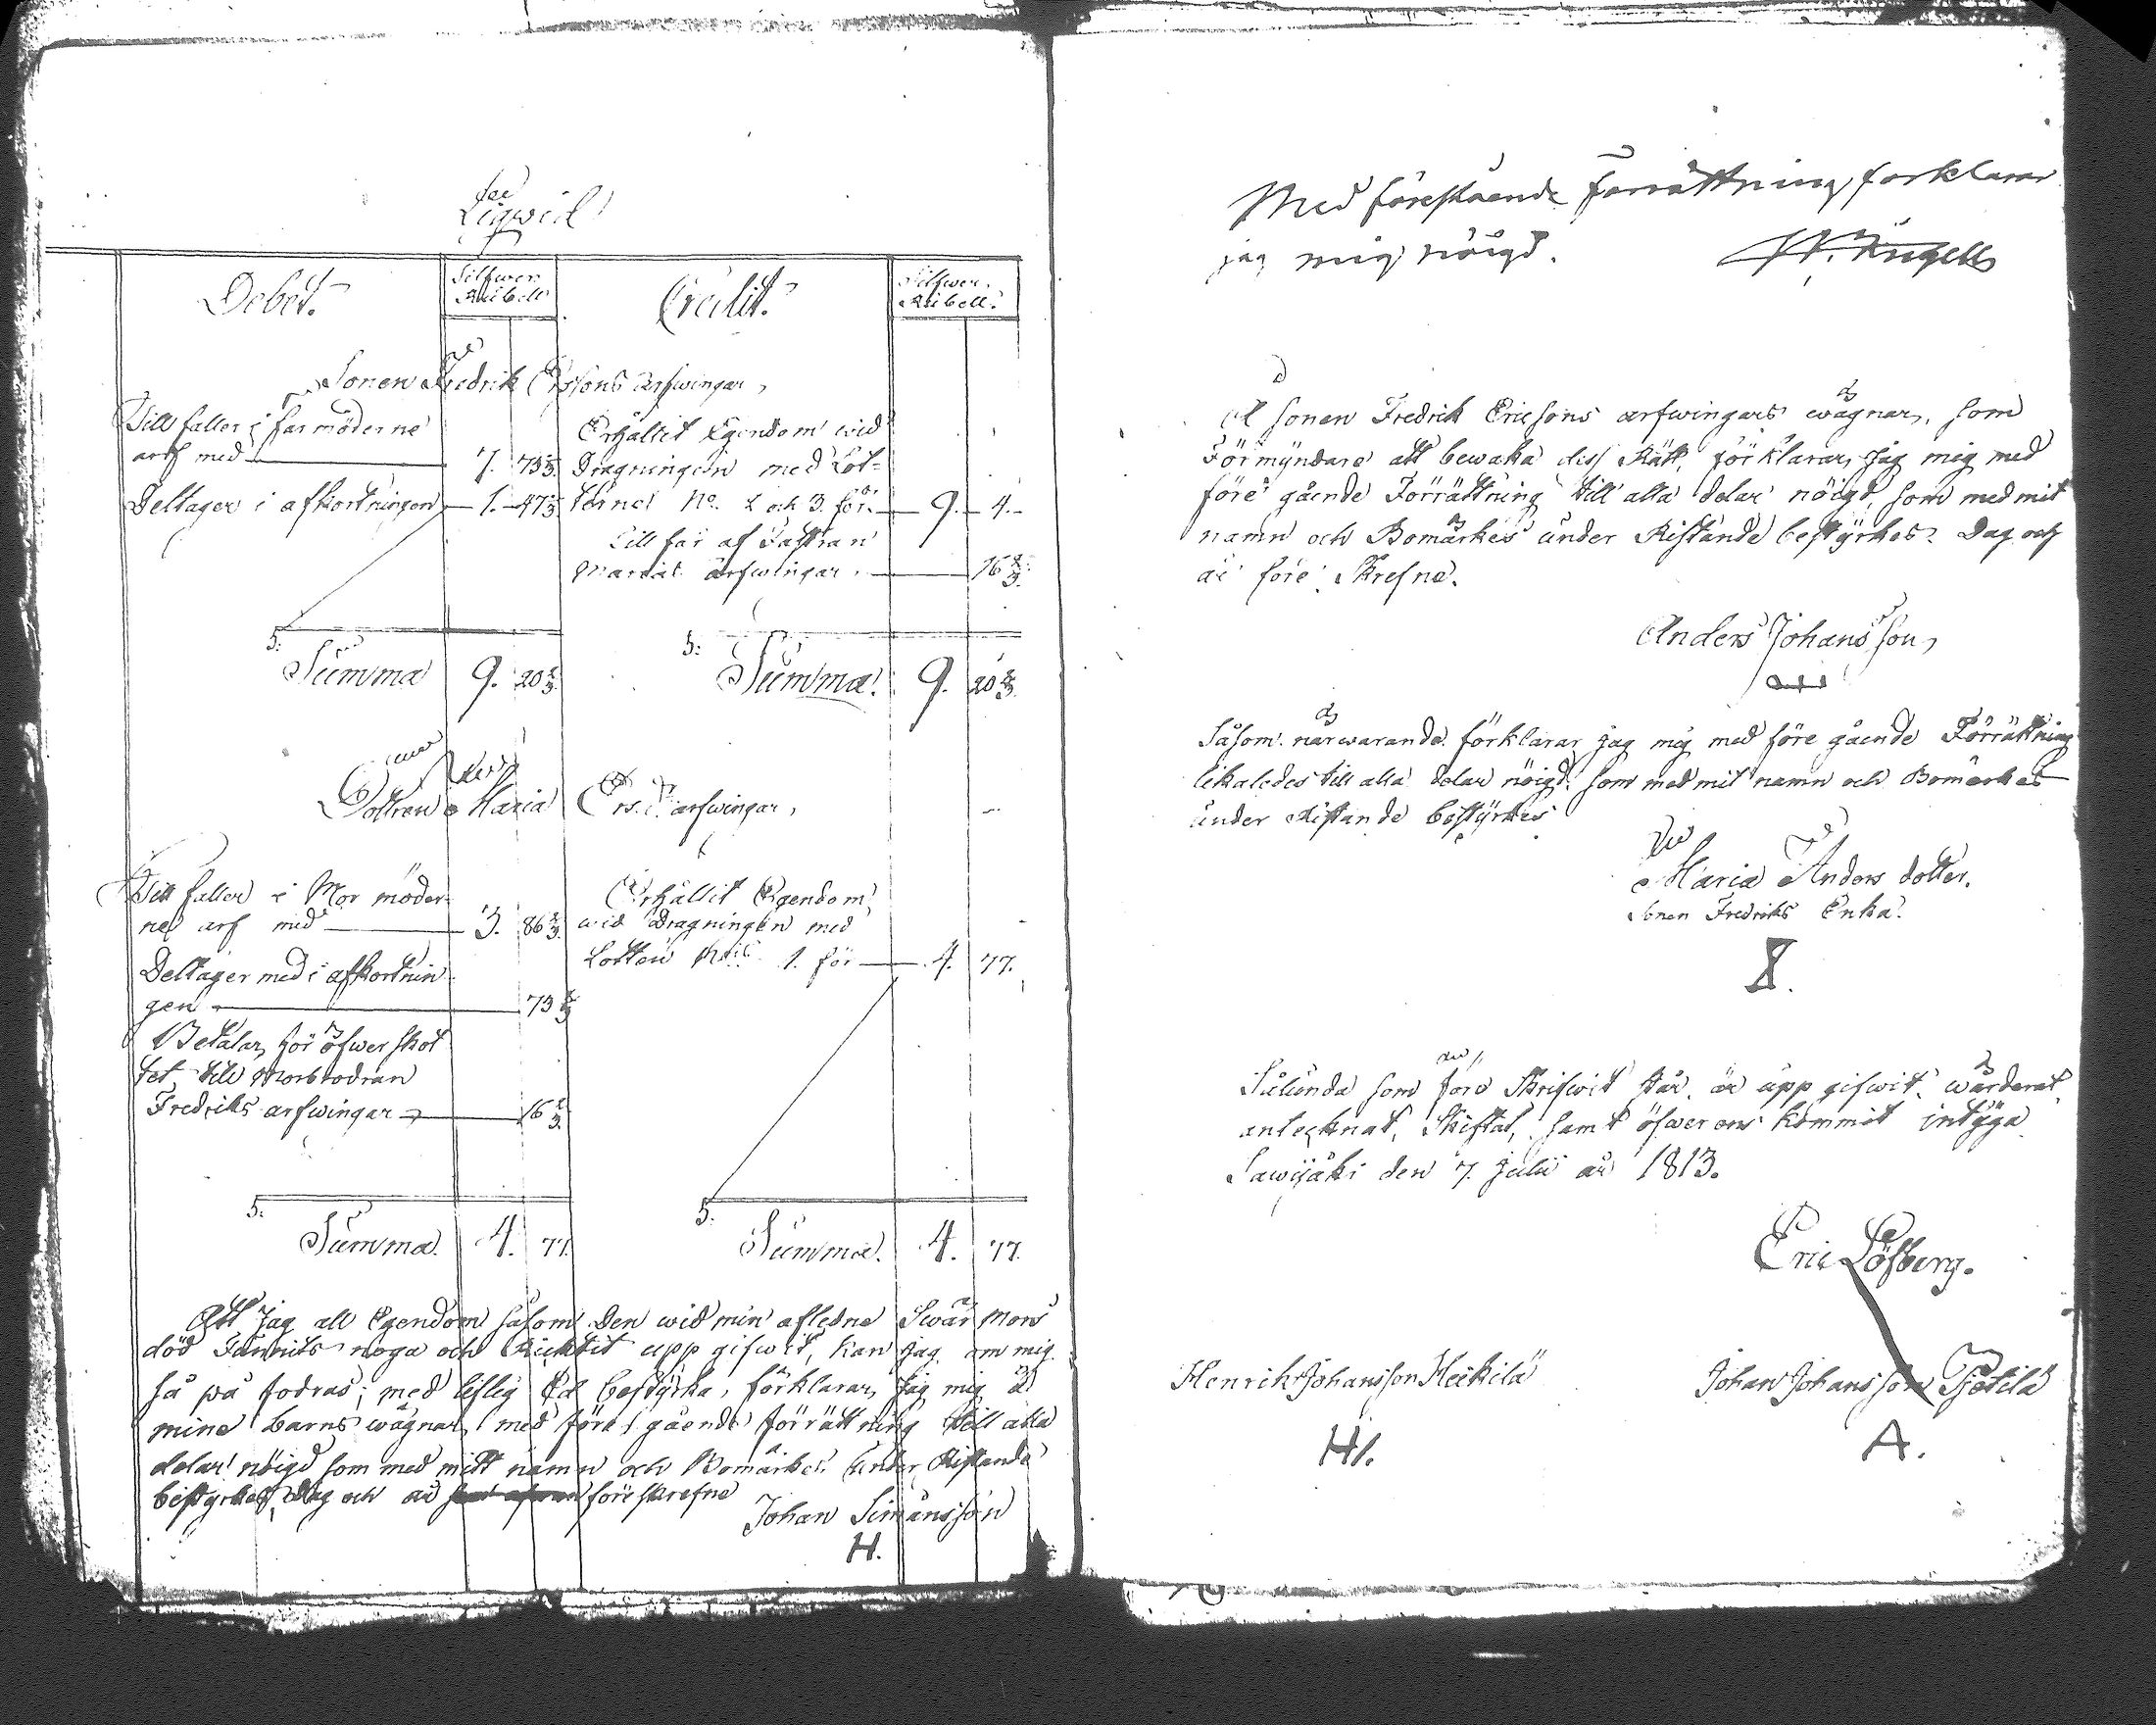 Liqwid
Debet.
Silfwer
Rubell
Credit.
Silfwer.
Rubell.
Sonen Fredrik Ersons arfwingar,
Till faller i far möderne
arf med 7. 73 1/3.
Deltager i afkortningen 1. 47 1/3
Erhållit Egendom wid
Dragningen med Lot-
terne No. 2 och 3. för 9. 4.
Till får af Fastran
Marias arfwingar. 16 2/3.
S: Summa 9. 20 2/3.
S: Summa. 9. 20 2/3.
Dottren Maria Ers. d. arfwingar,
Till faller i Mor möder-
ne arf med 3. 86 2/3.
Deltager med i afkortnin
gen 73 2/3
Betalar för öfwer skot
tet till Morbrodran
Fredriks arfwingar 16 2/3.
Erhållit Egendom
wid Dragningen med
Lotten 1. för 4. 77.
S: Summa. 4. 77.
S: Summa. 4. 77.
Att Jag all Egendom såsom Den wid min afledne Swär Mors
död Funnits noga och Ricktit upp gifwit, kan jag om mig
så på fodras, med liflig Ed bestyrka, förklarar Jag mig å
mine barns wägnar med före gående förrättning till alla
delar nöigd som med mitt namn och Bomärke under Ristande
bestyrkes, Dag och år föreskrefne
Johan Simonsson
H.
Med förestående Förrättning forklarar
jag mig nöigd.
Å sonen Fredrik Ericsons arfwingars wägnar, som
Förmyndare att bewaka dess Rätt, förklarar Jag mig med
före gående Förrättning till alla delar nöigd, som med mit
namn och Bomärkes under Ristande bestyrkes. Dag och
år före Skrefne.
Anders Johansson
Såsom närwarande förklarar jag mig med före gående Förrättning
likaledes till alla delar nöigd. som med mit namn och Bomärkes
under Ristande bestyrkes
Maria Anders dotter.
Sonen Fredriks Enka.
Sålunda som före Skrifwit står, är upp gifwit, wärderat,
antecknat, Skiftat, samt öfwer ens kommit intyga
Sawijäki den 7. Julii år 1813.
Eric Löfberg.
Henrik Johansson Heikilä
Johan Johansson Tjetilä
H.
A.